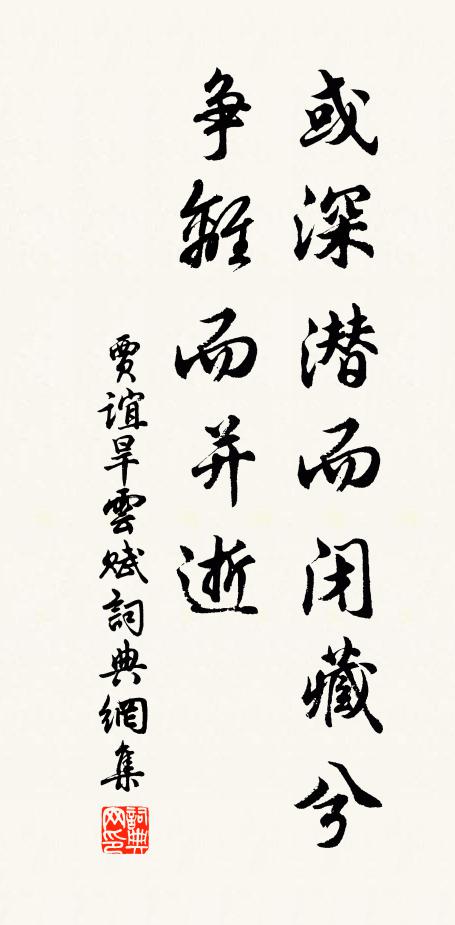 或深潜而闭藏兮
争離而并逝
賈誼旱雲賦詞典網集
詞典网印